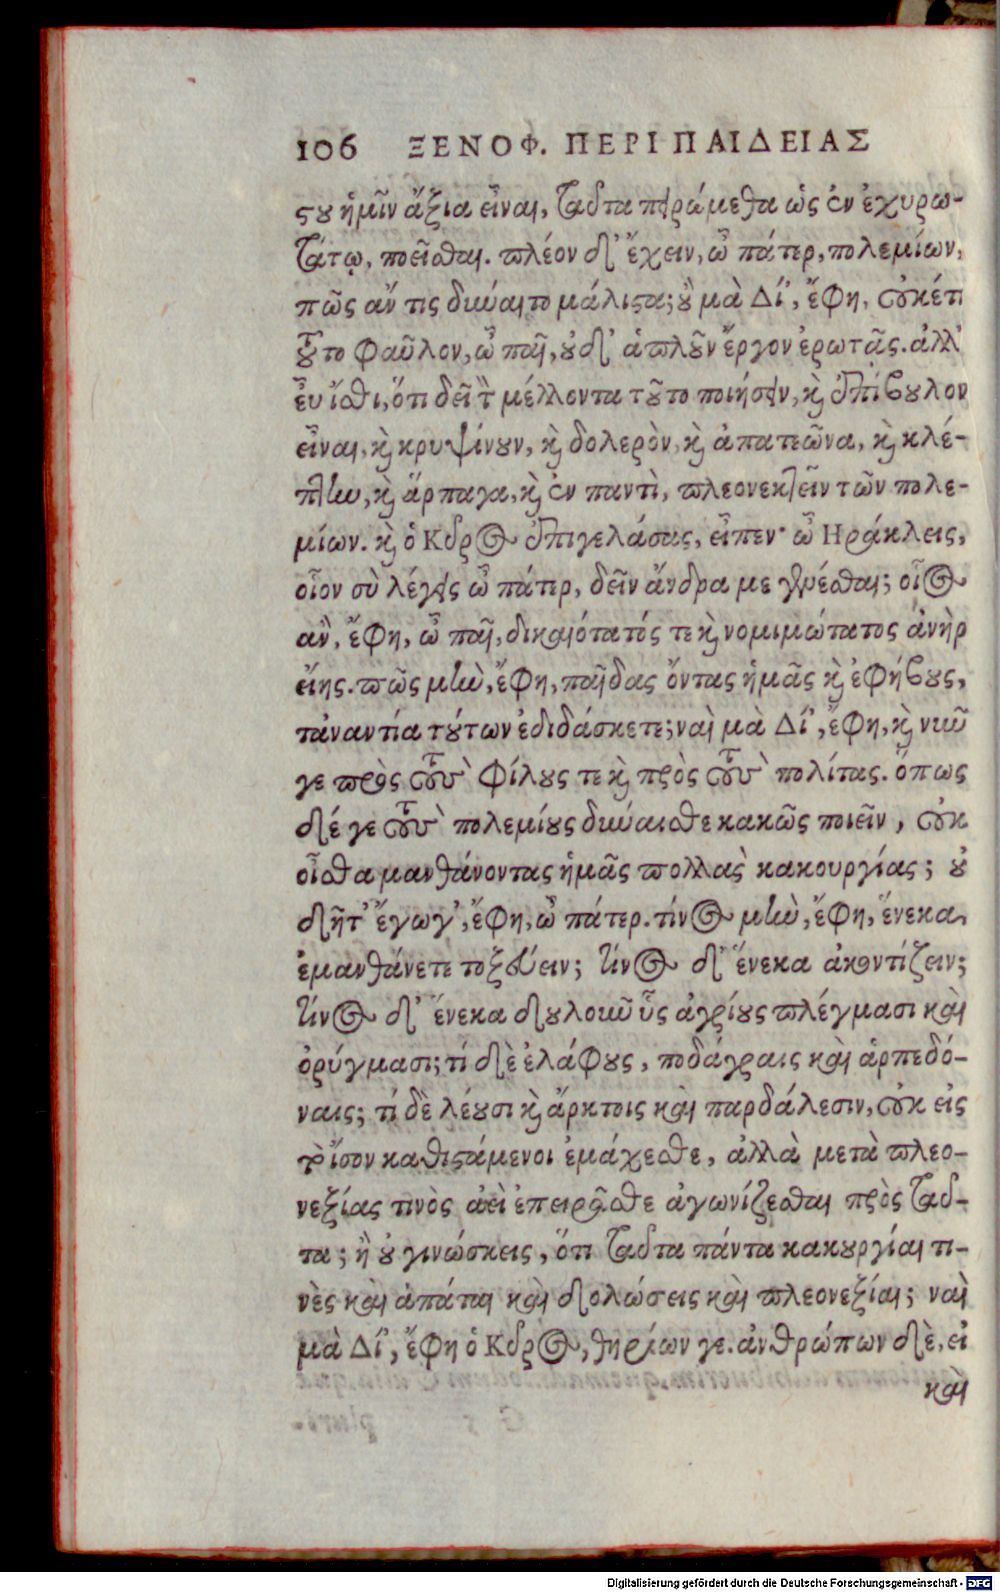 106 ΞΕΝΟΦ. ΠΕΡΙ ΠΑΙΔΕΙΑΣ
ϛου ἡμῖν ἄξια εἶναι, ταῦτα πειρώμεθα ὡς ἐν ἐχυρω-
τάτῳ, ποιεῖσθαι. πλέον δ' ἔχειν, ὦ πάτερ, πολεμίων,
πῶς ἄν τις δύναιτο μάλιϛα; οὐ μὰ Δί', ἔφη, οὐκέτι
τοῦτο φαῦλον, ὦ παῖ, οὐδ' ἁπλοῦν ἔργον ἐρωτᾷς. ἀλλ'
εὖ ἴσθι, ὅτι δεῖ τὸν μέλλοντα τοῦτο ποιήσειν, καὶ ἐπίβουλον
εἶναι, καὶ κρυψίνουν, καὶ δολερὸν, καὶ ἀπατεῶνα, καὶ κλέ-
πτην, καὶ ἅρπαγα, καὶ ἐν παντὶ, πλεονεκτεῖν τῶν πολε-
μίων. καὶ ὁ Κῦρος ἐπιγελάσας, εἶπεν· ὦ Ηράκλεις,
οἷον σὺ λέγεις ὦ πάτερ, δεῖν ἄνδρα με γενέσθαι; οἷος
ἂν, ἔφη, ὦ παῖ, δικαιότατός τε καὶ νομιμώτατος ἀνὴρ
εἴης. πῶς μὴν, ἔφη, παῖδας ὄντας ἡμᾶς καὶ ἐφήβους,
τἀναντία τούτων ἐδιδάσκετε; ναὶ μὰ Δί', ἔφη, καὶ νῦν
γε πρὸς τοὺς φίλους τε καὶ πρὸς τοὺς πολίτας. ὅπως
δέ γε τοὺς πολεμίους δύναισθε κακῶς ποιεῖν, οὐκ
οἶσθα μανθάνοντας ἡμᾶς πολλὰς κακουργίας; οὐ
δῆτ' ἔγωγ', ἔφη, ὦ πάτερ. τίνος μὴν, ἔφη, ἕνεκα,
ἐμανθάνετε τοξεύειν; τίνος δ' ἕνεκα ἀκοντίζειν;
τίνος δ' ἕνεκα δολοῦν ὗς ἀγρίους πλέγμασι καὶ
ὀρύγμασι; τί δὲ ἐλάφους, ποδάγραις καὶ ἁρπεδό-
ναις; τί δὲ λέουσι καὶ ἄρκτοις καὶ παρδάλεσιν, οὐκ εἰς
τὸ ἴσον καθιϛάμενοι ἐμάχεσθε, ἀλλὰ μετὰ πλεο-
νεξίας τινὸς ἀεὶ ἐπειρᾶσθε ἀγωνίζεσθαι πρὸς ταῦ-
τα; ἢ οὐ γινώσκεις, ὅτι ταῦτα πάντα κακουργίαι τι-
νὲς καὶ ἀπάται καὶ δολώσεις καὶ πλεονεξίαι; ναὶ
μὰ Δί', ἔφη ὁ Κῦρος, θηρίων γε. ἀνθρώπων δὲ, εἰ
καὶ
Digitalisierung gefördert durch die Deutsche Forschungsgemeinschaft - DFG